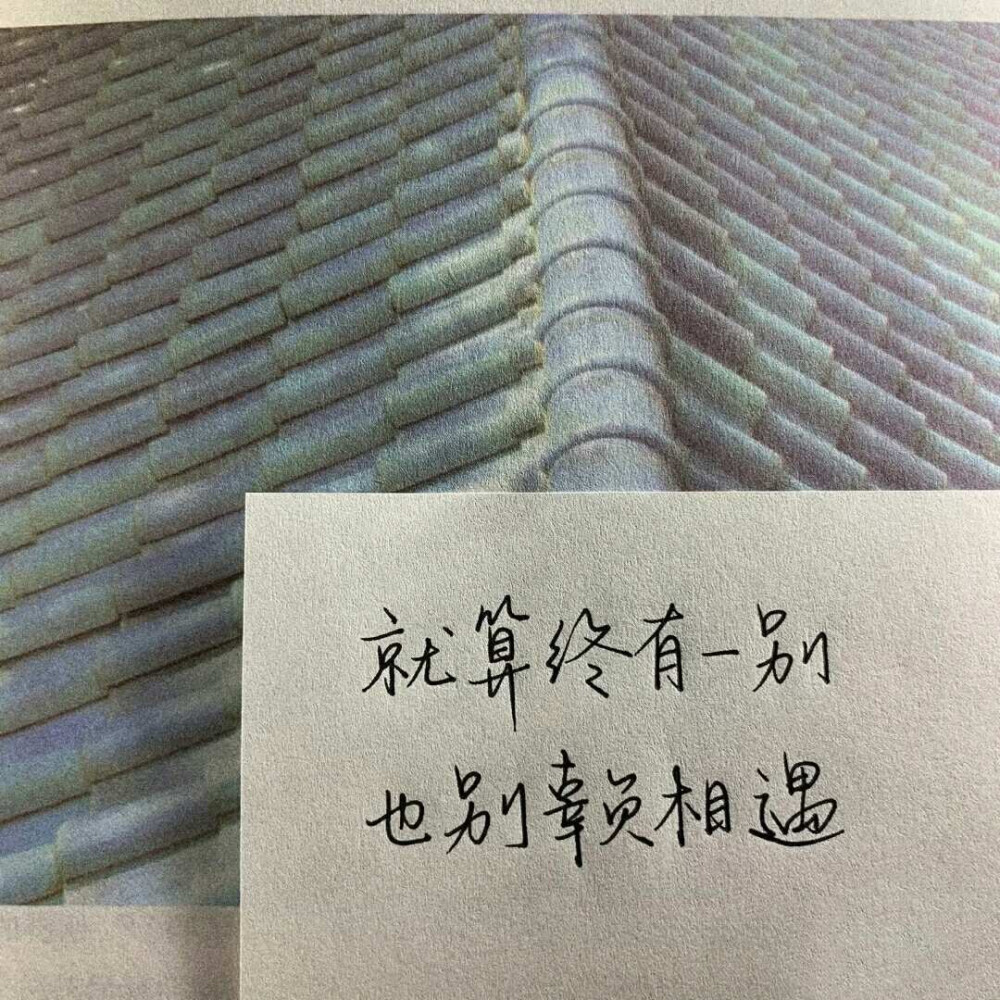 就算终有一别
也别辜负相遇